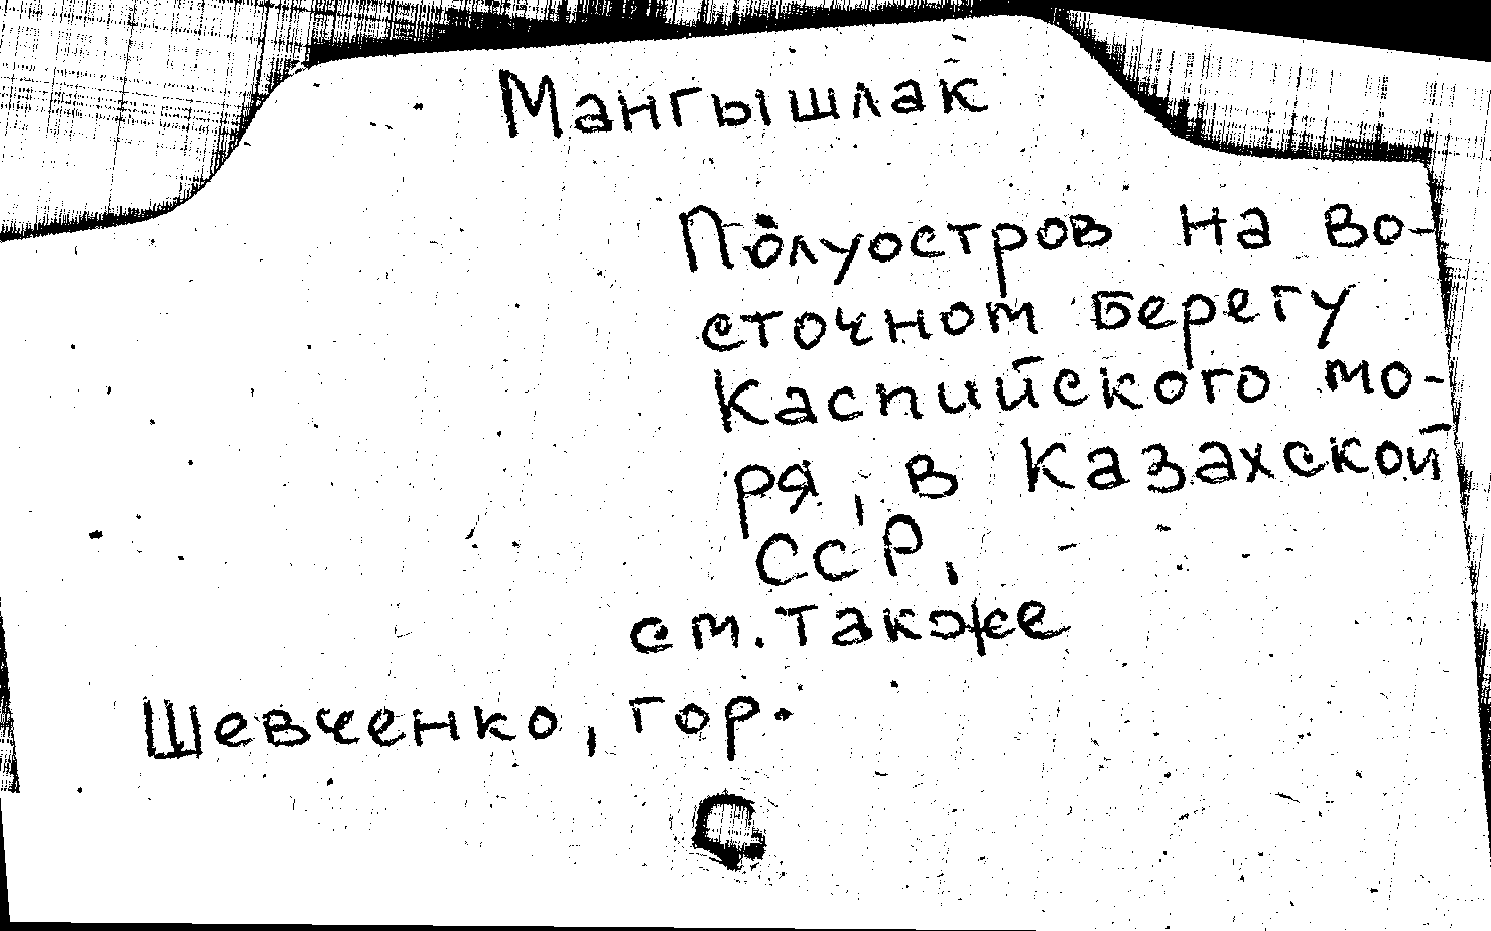 Мангышлак
Полуостров на во-
сточном берегу
Каспийского мо-
ря, в Казахской
ССР,
см. также
Шевченко, гор.